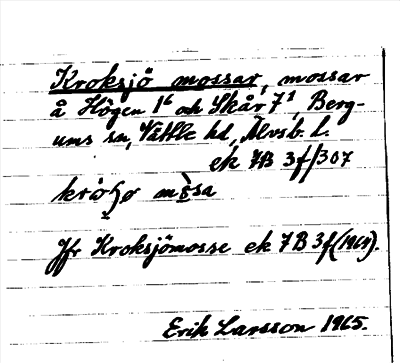 Kroksjö mossar, mossar
å Högen 1⁶ och Skår 7¹, Berg-
ums sn, Vättle hd, Älvsb. l.
ek 7B 3f/307
Jfr Kroksjömosse ek 7B 3f (1961).
Erik Larsson 1965.